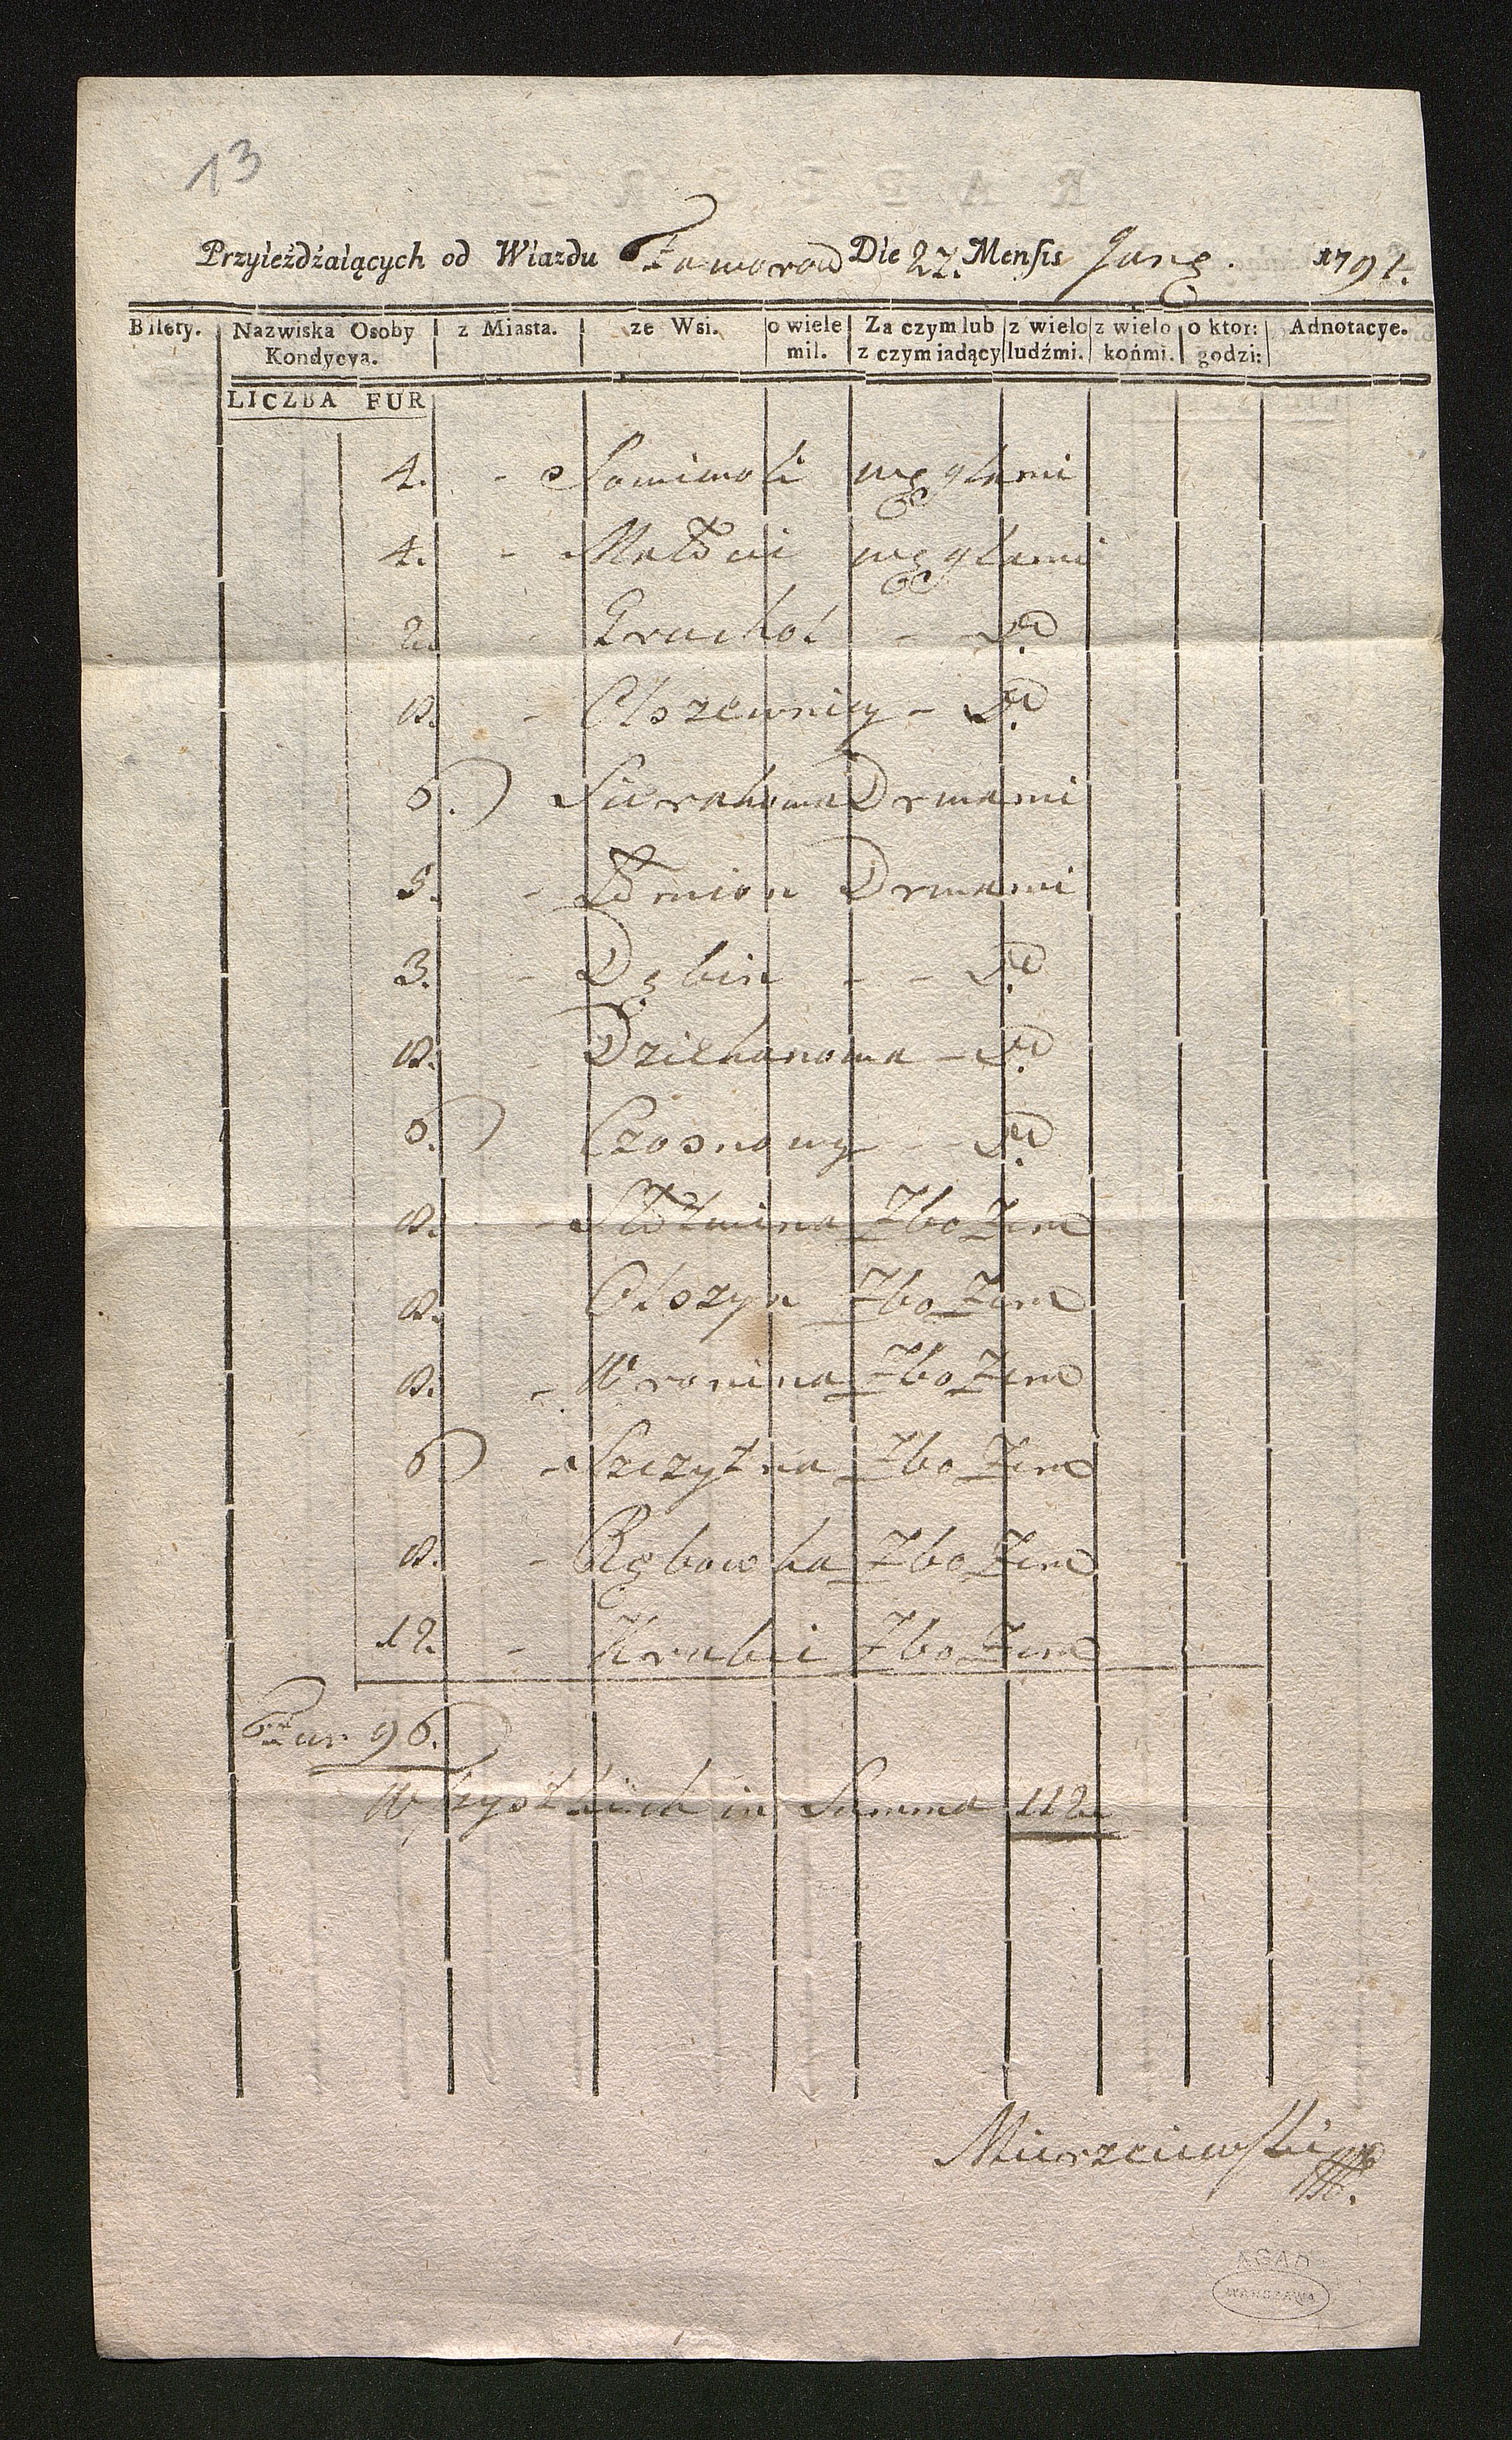 13
Przyieżdżaiących od Wiazdu Die 27. Mensis 1791.
Bilety. Nazwiska Osoby Kondycya. z Miasta. ze Wsi. o wiele mil. Za czym lub z czym iadący z wielo ludźmi. z wielo końmi. o ktor: godzi: Adnotacye.
LICZBA FUR
4. - Somiwoli węglami
4. - węglami
2. - Grachol - Do
- Olszewnicy - Do
6. Sierakowa Drwami
5. - Drwami
3. - Dębin - - Do
- Dziekanowa - Do
6. Czosnowy - Do
- Zbożem
- Olszyn Zbożem
- Wronina Zbożem
6 - Szczytna Zbożem
- Rębowka Zbożem
12. - Krubi Zbożem
Fur 96.
Wszystkich in Summa 112.
Mierzeiewski
AGAD
WARSZAWA